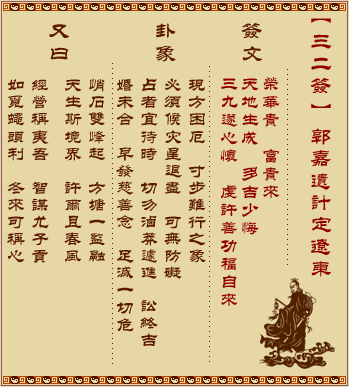 【三二簽】 郭嘉遺計定遼東
簽文
榮華貴 富貴來
天地生成 多吉少悔
三九遂心懷 虔許善功福自來
卦象
現方困厄 寸步難行之象
必須候灾星退盡 可無防礙
占者宜待時 切勿滷莽遽進 訟終吉
婚未合 早發慈善念 足滅一切危
又曰
峭石雙峰起 方塘一監融
天生斯境界 許爾且春風
經營稱夷吾 智謀尤子貢
如覓蠅頭利 冬來可稱心